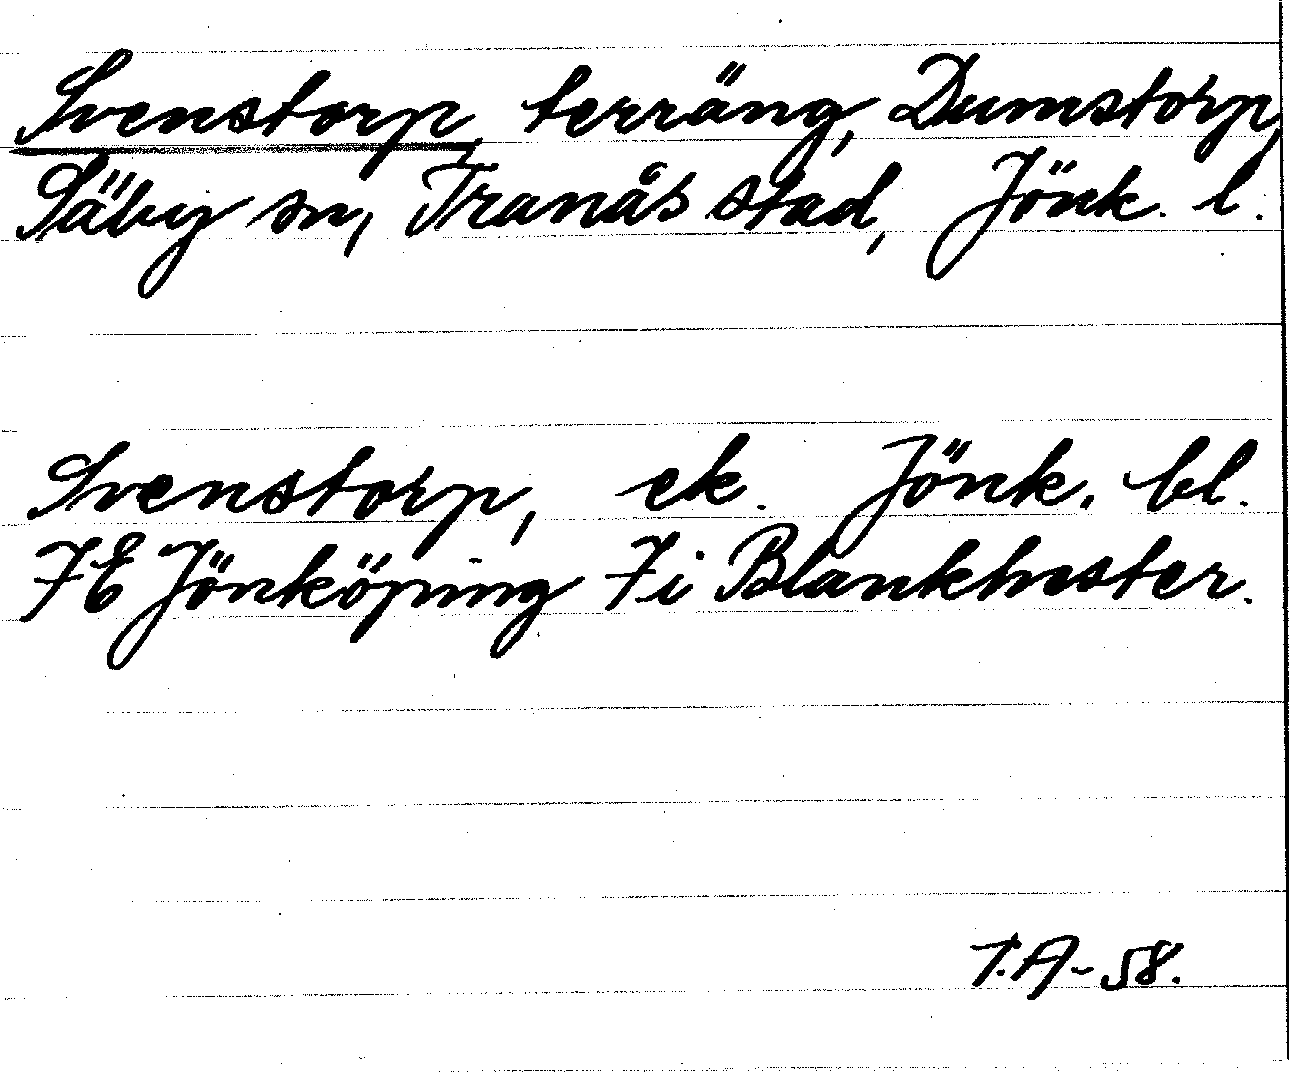 Svenstorp, terräng, Dumstorp,
Säby sn, Tranås stad, Jönk. l.
Svenstorp, ek. Jönk. bl.
7E Jönköping 7i Blankhester.
T.A-58.